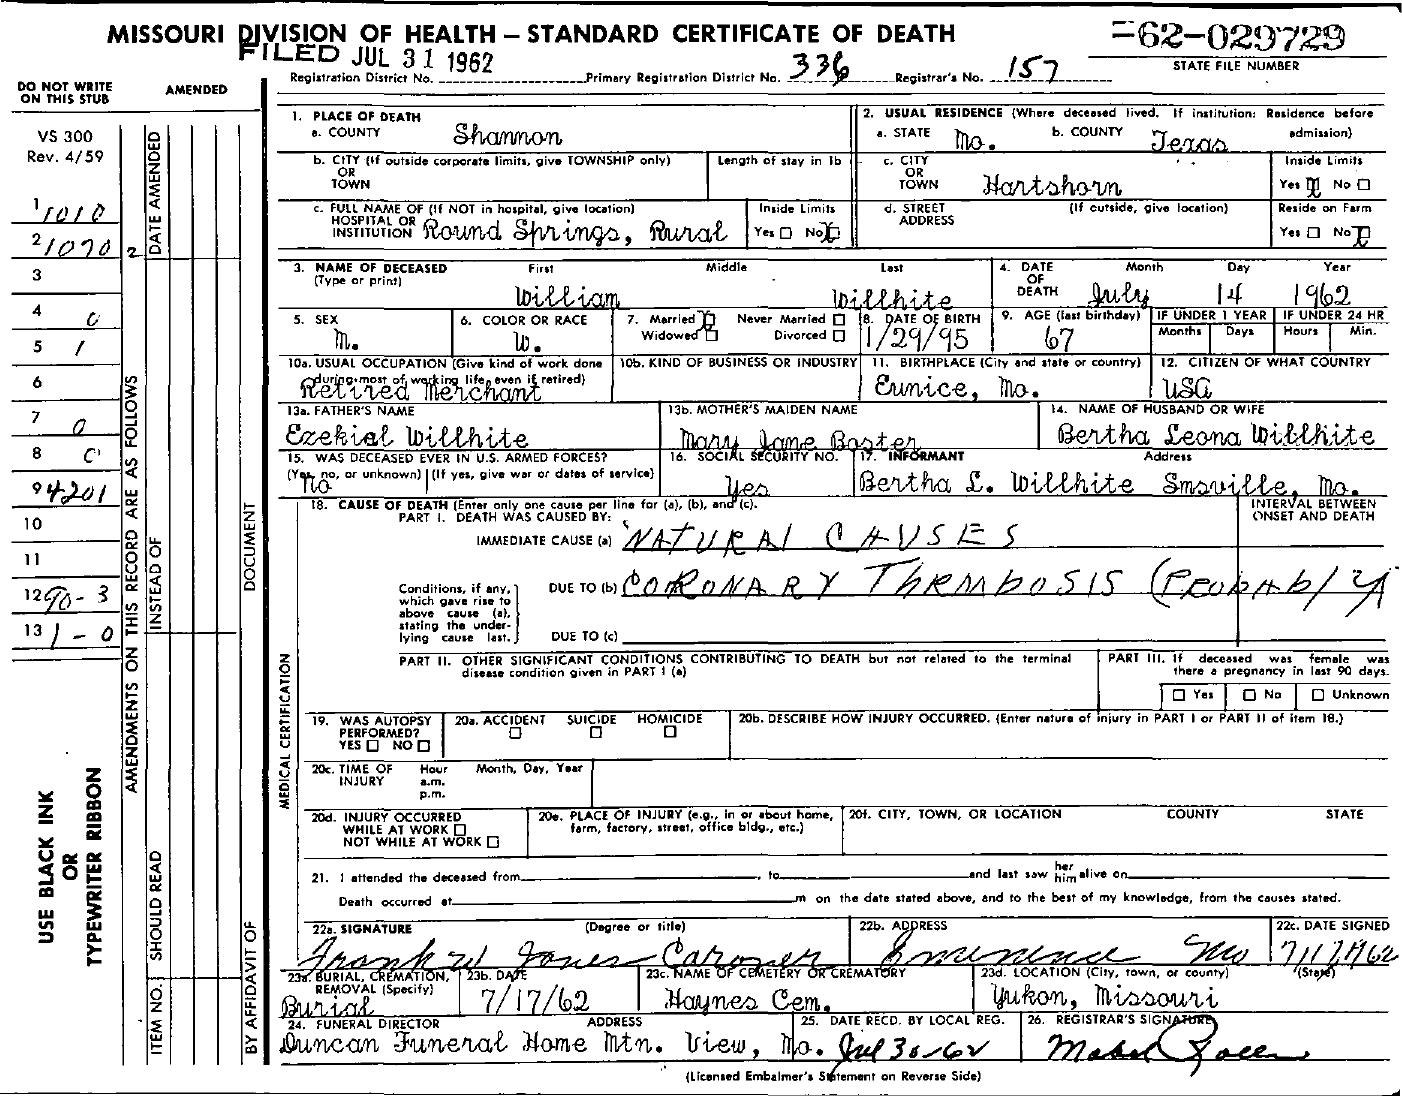 MISSOURI DIVISION OF HEALTH – STANDARD CERTIFICATE OF DEATH
62-029729
STATE FILE NUMBER
FILED JUL 31 1962
Registration District No. Primary Registration District No. 336 Registrar's No. 157
DO NOT WRITE ON THIS STUB
AMENDED
VS 300
Rev. 4/59
1 1010
2 1070
3
4 0
5 1
6
7 0
8 0
9 4201
10
11
12 90-3
13 1-0
USE BLACK INK
OR
TYPEWRITER RIBBON
AMENDMENTS ON THIS RECORD ARE AS FOLLOWS
2
DATE AMENDED
INSTEAD OF
SHOULD READ
ITEM NO.
DOCUMENT
BY AFFIDAVIT OF
1. PLACE OF DEATH
a. COUNTY Shannon
2. USUAL RESIDENCE (Where deceased lived. If institution: Residence before admission)
a. STATE Mo. b. COUNTY Texas
b. CITY (If outside corporate limits, give TOWNSHIP only) OR TOWN
Length of stay in 1b
c. CITY OR TOWN Hartshorn
Inside Limits
Yes X No
c. FULL NAME OF (If NOT in hospital, give location) HOSPITAL OR INSTITUTION Round Springs, Rural
Inside Limits
Yes No X
d. STREET ADDRESS (If outside, give location)
Reside on Farm
Yes No X
3. NAME OF DECEASED (Type or print)
First Middle Last
William Willhite
4. DATE OF DEATH Month Day Year
July 14 1962
5. SEX
M.
6. COLOR OR RACE
W.
7. Married X Never Married
Widowed Divorced
8. DATE OF BIRTH
1/29/95
9. AGE (last birthday)
67
IF UNDER 1 YEAR
Months Days
IF UNDER 24 HR
Hours Min.
10a. USUAL OCCUPATION (Give kind of work done during most of working life, even if retired)
Retired Merchant
10b. KIND OF BUSINESS OR INDUSTRY
11. BIRTHPLACE (City and state or country)
Eunice, Mo.
12. CITIZEN OF WHAT COUNTRY
USA
13a. FATHER'S NAME
Ezekial Willhite
13b. MOTHER'S MAIDEN NAME
Mary Jane Baster
14. NAME OF HUSBAND OR WIFE
Bertha Leona Willhite
15. WAS DECEASED EVER IN U.S. ARMED FORCES?
(Yes, no, or unknown) (If yes, give war or dates of service)
no
16. SOCIAL SECURITY NO.
Yes
17. INFORMANT Address
Bertha L. Willhite Smsville, Mo.
MEDICAL CERTIFICATION
18. CAUSE OF DEATH (Enter only one cause per line for (a), (b), and (c).
PART I. DEATH WAS CAUSED BY:
INTERVAL BETWEEN ONSET AND DEATH
IMMEDIATE CAUSE (a) NATURAL CAUSES
Conditions, if any, which gave rise to above cause (a), stating the underlying cause last.
DUE TO (b) CORONARY THRMBOSIS (PROBABLY)
DUE TO (c)
PART II. OTHER SIGNIFICANT CONDITIONS CONTRIBUTING TO DEATH but not related to the terminal disease condition given in PART I (a)
PART III. If deceased was female was there a pregnancy in last 90 days.
Yes No Unknown
19. WAS AUTOPSY PERFORMED?
YES NO
20a. ACCIDENT SUICIDE HOMICIDE
20b. DESCRIBE HOW INJURY OCCURRED. (Enter nature of injury in PART I or PART II of item 18.)
20c. TIME OF INJURY Hour a.m. p.m. Month, Day, Year
20d. INJURY OCCURRED
WHILE AT WORK
NOT WHILE AT WORK
20e. PLACE OF INJURY (e.g., in or about home, farm, factory, street, office bldg., etc.)
20f. CITY, TOWN, OR LOCATION COUNTY STATE
21. I attended the deceased from , to and last saw her him alive on
Death occurred at m on the date stated above, and to the best of my knowledge, from the causes stated.
22a. SIGNATURE (Degree or title)
Frank W Jones Caroner
22b. ADDRESS
Eminence Mo
22c. DATE SIGNED
7/17/1962
23a. BURIAL, CREMATION, REMOVAL (Specify)
Burial
23b. DATE
7/17/62
23c. NAME OF CEMETERY OR CREMATORY
Haynes Cem.
23d. LOCATION (City, town, or county) (State)
Yukon, Missouri
24. FUNERAL DIRECTOR ADDRESS
Duncan Funeral Home Mtn. View, Mo.
25. DATE RECD. BY LOCAL REG.
Jul 30-62
26. REGISTRAR'S SIGNATURE
Mabel
(Licensed Embalmer's Statement on Reverse Side)